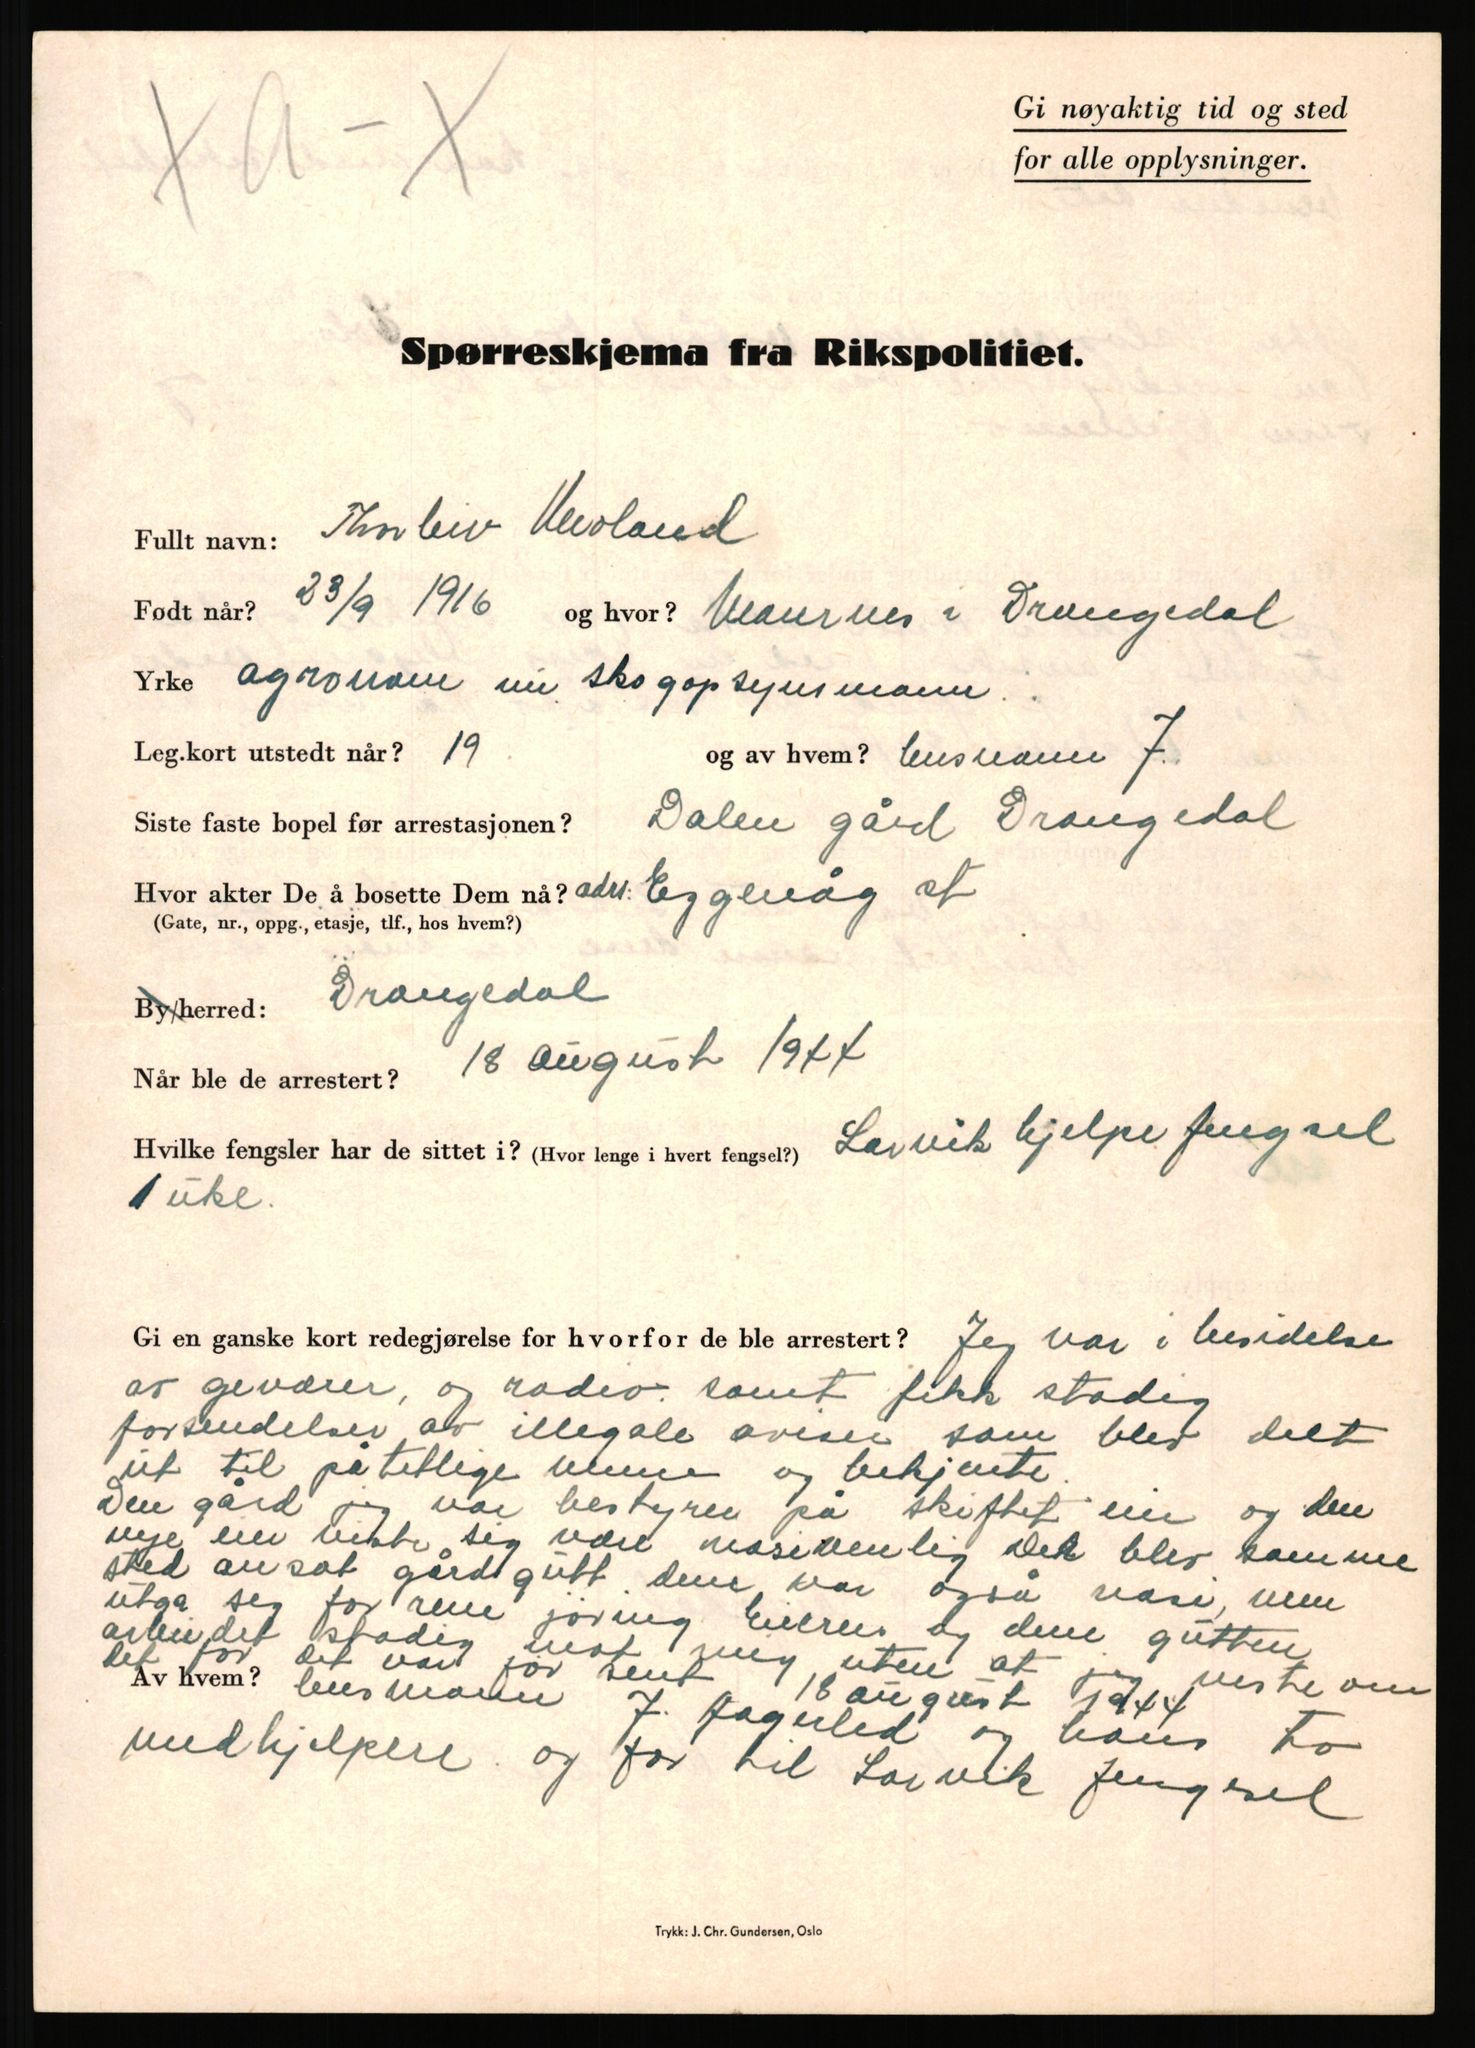 X A - X
Gi nøyaktig tid og sted
for alle opplysninger.
Spørreskjema fra Rikspolitiet.
Fullt navn: Thorleiv
Født når? 23/9 1916 og hvor? i Drangedal
Yrke agronom nu skogopsynsmann.
Leg.kort utstedt når? 19 og av hvem? lensmann J.
Siste faste bopel før arrestasjonen? Dalen gård Drangedal
Hvor akter De å bosette Dem nå? adrs: Eggevåg st
(Gate, nr., oppg., etasje, tlf., hos hvem?)
By/herred: Drangedal
Når ble de arrestert? 18 august 1944
Hvilke fengsler har de sittet i? (Hvor lenge i hvert fengsel?) Larvik hjelpe fengsel
1 uke.
Gi en ganske kort redegjørelse for hvorfor de ble arrestert? Jeg var i besidelse
av geværer, og radio. samt fikk stadig
forsendelser av illegale aviser som blev delt
ut til påletlige venner og bekjente.
Den gård jeg var bestyrer på skiftet eier og den
nye eier viste sig være nasivenlig Det blev samme
sted ansat gårdsgutt denne var også nasi, men
utga seg for rene jøssing Eieren og denne gutten
arbeidet stadig mot meg uten at jeg viste om
det før det var for sent 18 august 1944
Av hvem? lensmann J. og hans to
medhjelpere og før til Larvik fengsel
Trykk: J. Chr. Gundersen, Oslo